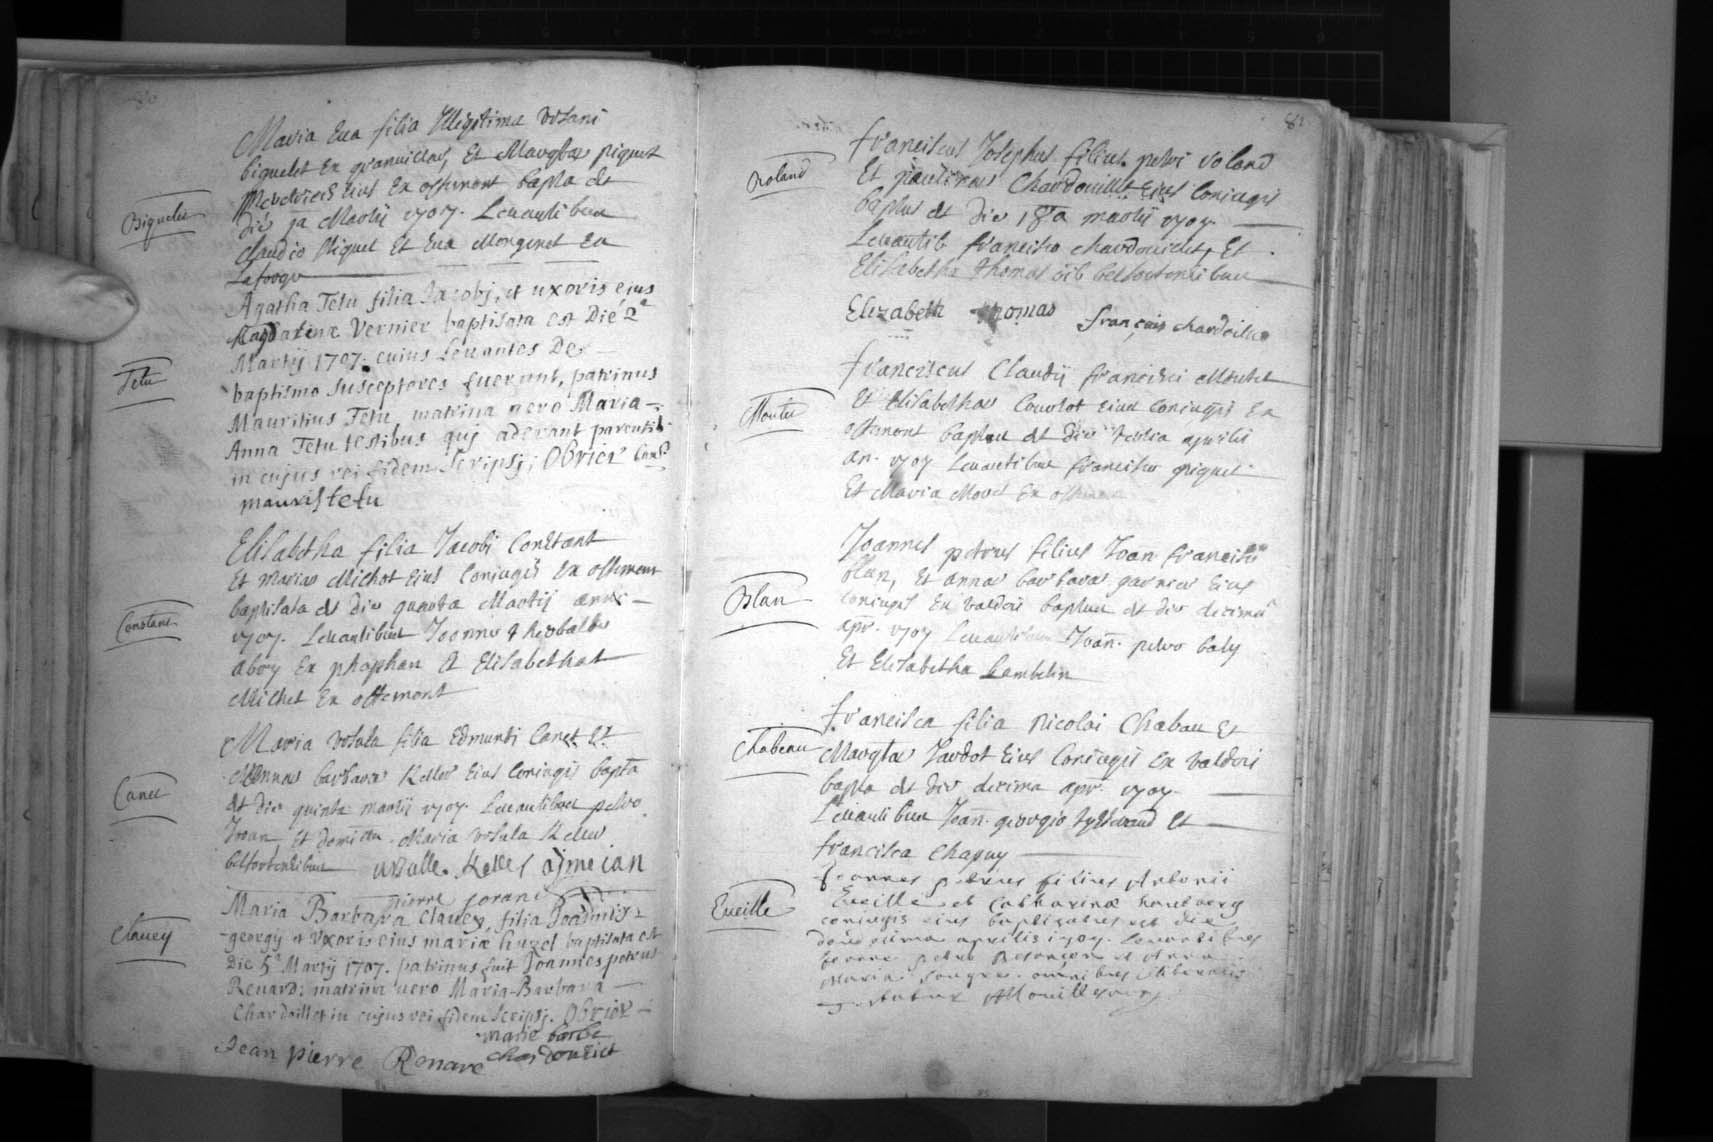 80
Maria Eva filia Illegitima Vrsani
biquelet Ex granvillar, Et Margtae piquet
eius Ex offemont bapta est
die 1a Martij 1707. Levantibus
Claudio piquet Et Eva Monginet Ex
Laforge
Biquelet
Agatha Tetu filia Jacobj, et uxoris eius
Magdalenæ Vernier baptisata est Die 2a
Martij 1707. cuius Levantes De
baptismo susceptores fuerunt, patrinus
Mauritius Tetu matrina vero Maria-
Anna Tetu testibus quj aderant parentib
in cujus rei fidem scripsj; Obrier
mauris tetu
Tetu
Elisabetha filia Jacobi Constant
Et Mariae Michot Eius Coniugis Ex offemont
baptisata est die quarta Martij anni
1707. Levantibus Joanne Theobaldo
abry Ex phaphan Et Elisabetha
Michet Ex offemont
Constant
Maria Vrsula filia Edmundi Canet Et
Annae barbarae Keller Eius Coniugis bapta
est die quinta martij 1707. Levantibus petro
Joan Et domina Maria Vrsula Keller
belfortensibus ursulle. Keller
Canet
pierre
Maria Barbara Clavey, filia Joannis
georgij et Vxoris eius mariæ huzel baptisata est
Die 5a Martij 1707. patrinus fuit Joannes petrus
Renard: matrina vero Maria-Barbara
Chardoillet in cujus rei fidem scripsj. Obrier
Jean pierre Renare marie barbe
chardouliet
Clavey
81
franciscus Josephus filius petri roland
Et paulinae Chardouillet Eius Coniugis
baptus est die 18va martij 1707.
Levantib francisco chardouillet, Et
Elisabetha thomas oib belfortensibus
Elizabeth thomas françois chardoillet
Roland
franciscus Claudij francisci Moutet
Et Elisabethae Courtot Eius Coniugis Ex
offemont baptus est die tertia aprilis
an. 1707 Levantibus francisco piquet
Et Maria Morel Ex offemont
Joannes petrus filius Joan. francisci
blan, Et annae barbarae garnier Eius
Coniugis Ex valdoii baptus est die decima
apr. 1707 Levantibus Joan. petro baly
Et Elisabetha Lambelin
Blan
francisca filia Nicolai Chabau Et
Margtae Jardot Eius Coniugis Ex valdoii
bapta est die decima apr. 1707.
Levantibus Joan. georgio Et
francisca Chapuy
Chabeau
Joannes petrus filius Antonii
Eveille et Catharinæ
coniugis eius baptizatus est die
duodecima aprilis 1707. Levantibus
Joanne petro Besançon et Anna
Maria
Eveille